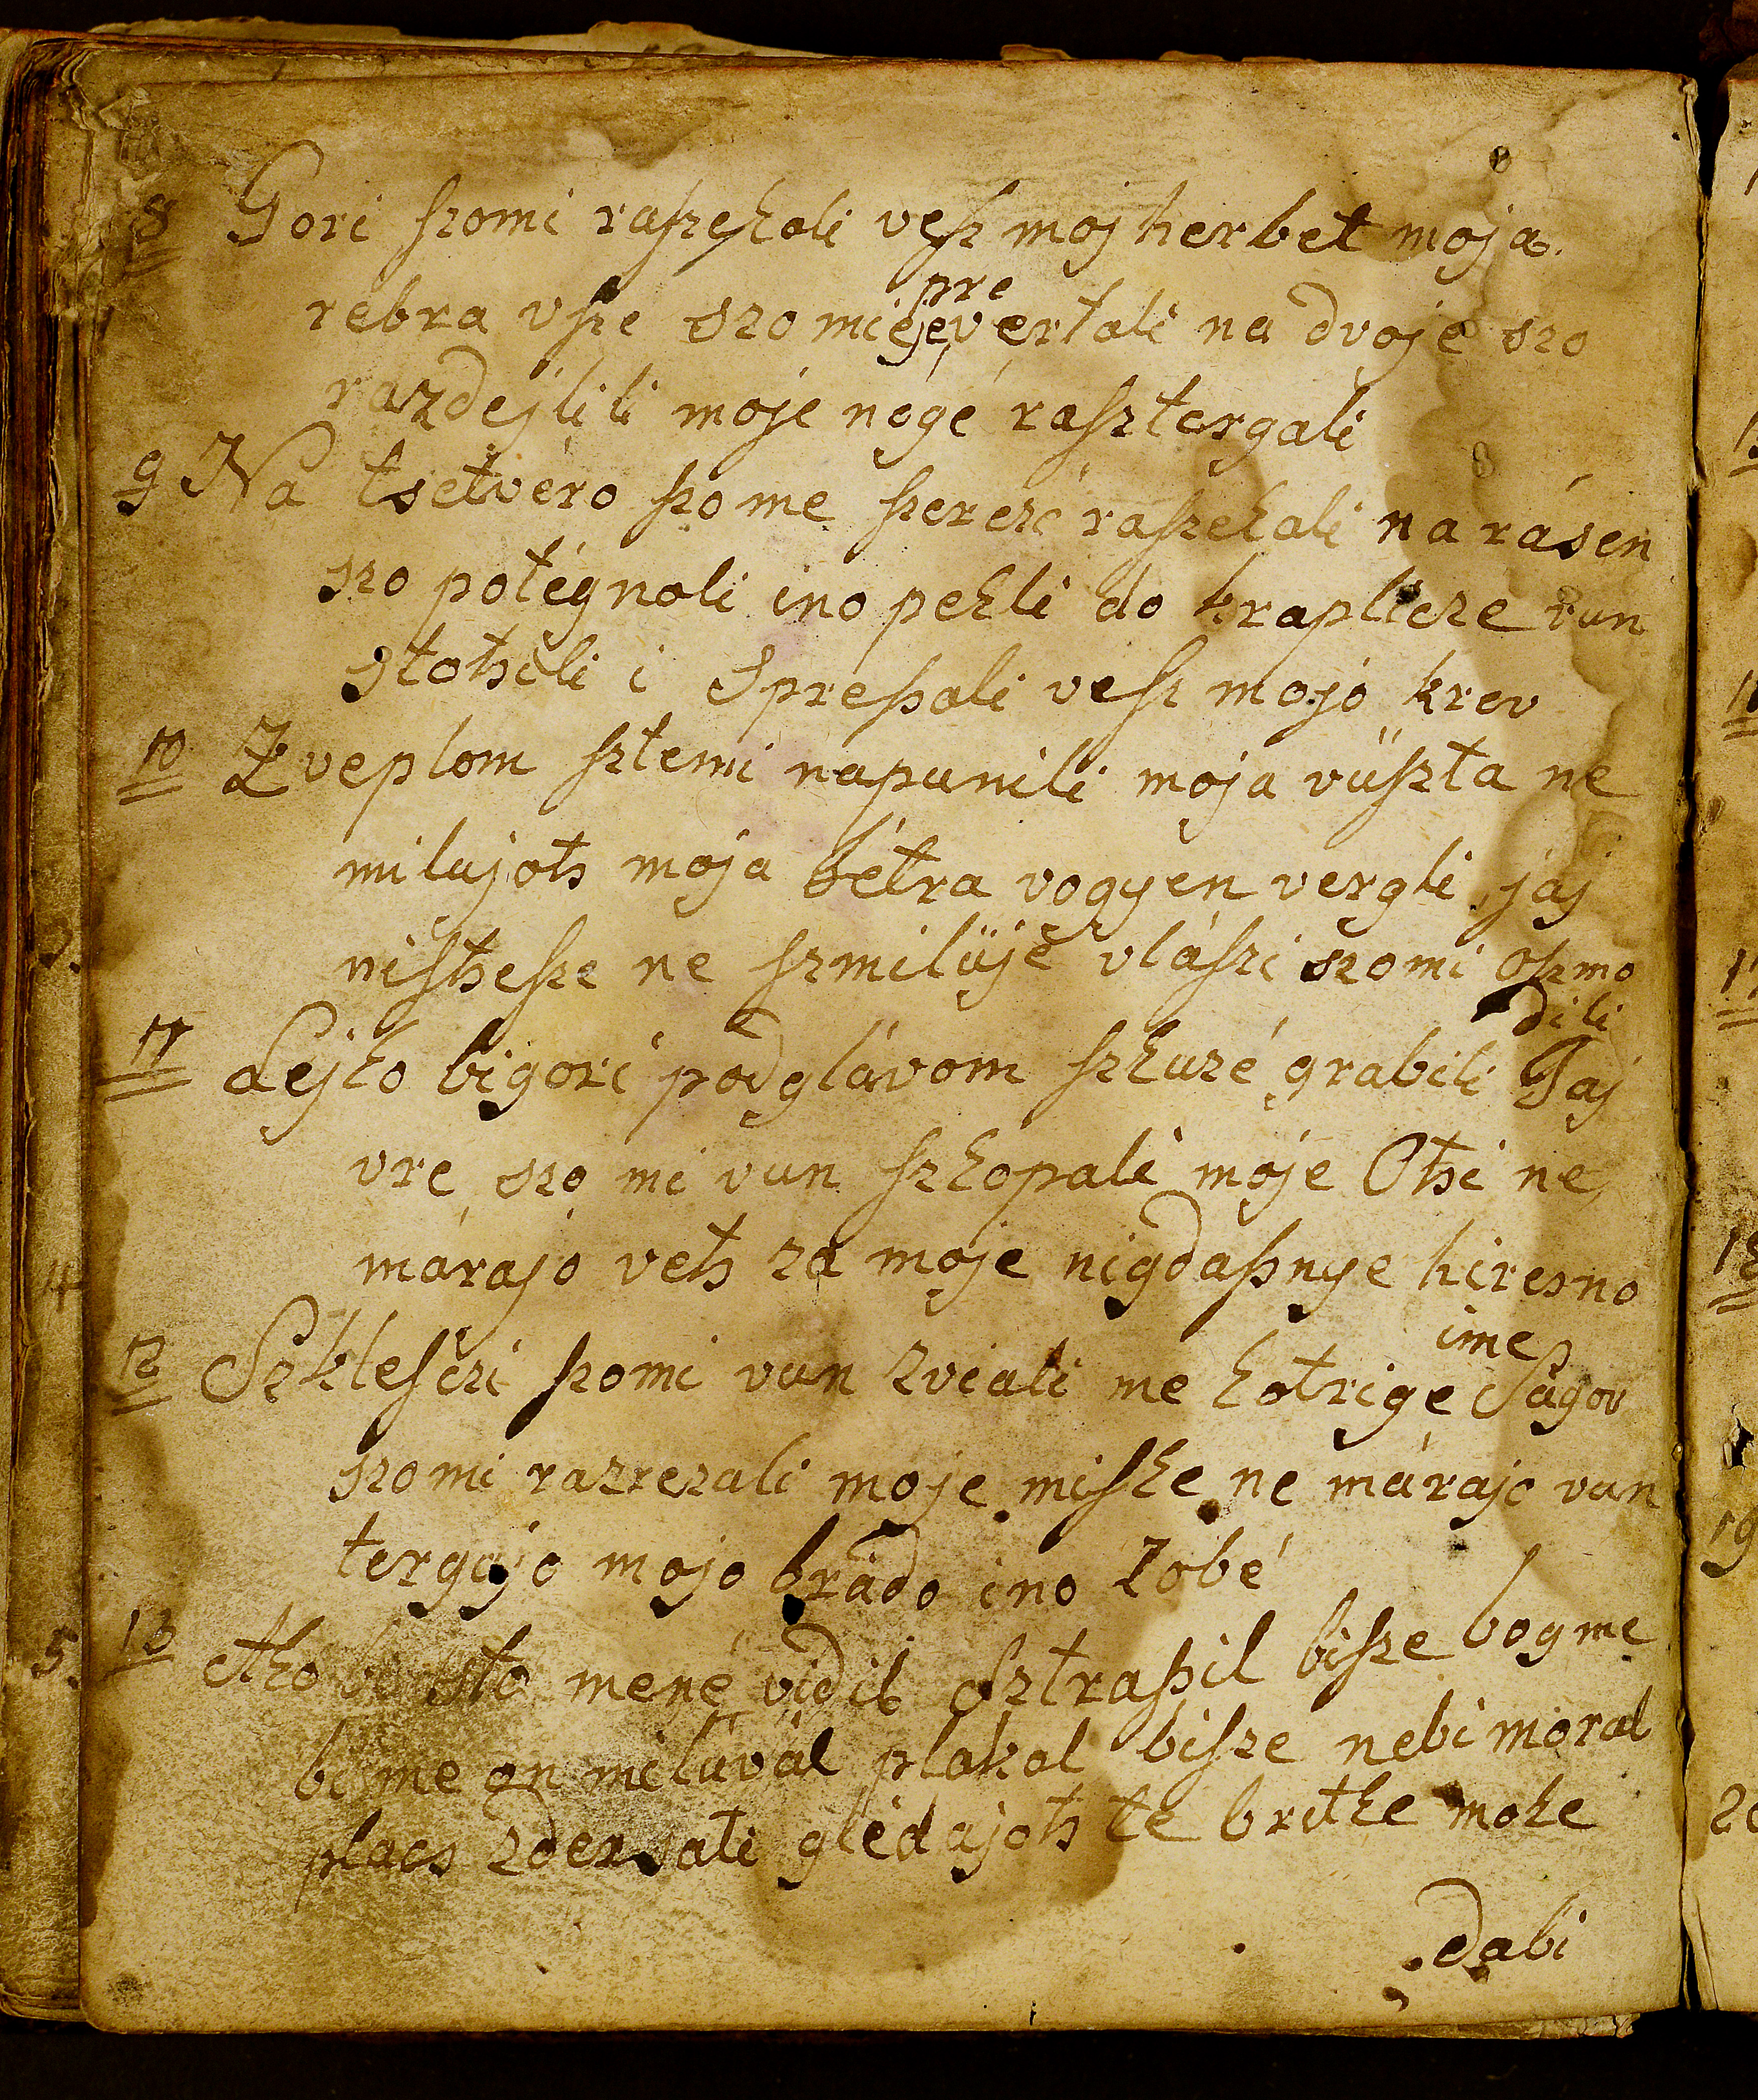 8 Gori szomi raszekali vesz moj herbet moja
pre
rebra vsze szo mi jevertali na dvoje szo
razdejlili moje nogé rasztergali
9 Na tsetvéro szo me szerczé raszekali na rásen
szo potégnoli ino pekli do kaplicze vun
stotsili i spreßali vesz mojó krev
10 Zveplom sztemi napunili moja vüszta ne
milajots moja bétra vogyen vergli jaj
nistsesze ne szmilüje vlászi szomi oszmo
dili
11 Lejko bigori pod glávom szkuzé grabili Jaj
vre szo mi vun szkopali moje Otsi ne
márajo vets za moje nigdaßnye hiresno
ime
12 Szklesczi szomi vun zviali me kotrige Ságov
szomi razrezali moje miske ne márajo van
tergajo mojo brado ino zobé
5. 13 Ako bi sto mené vidil osztraßil bisze bogme
bi me on milüval plakal bisze nebi moral
placs zdersati glédajots te britke moke
dabi